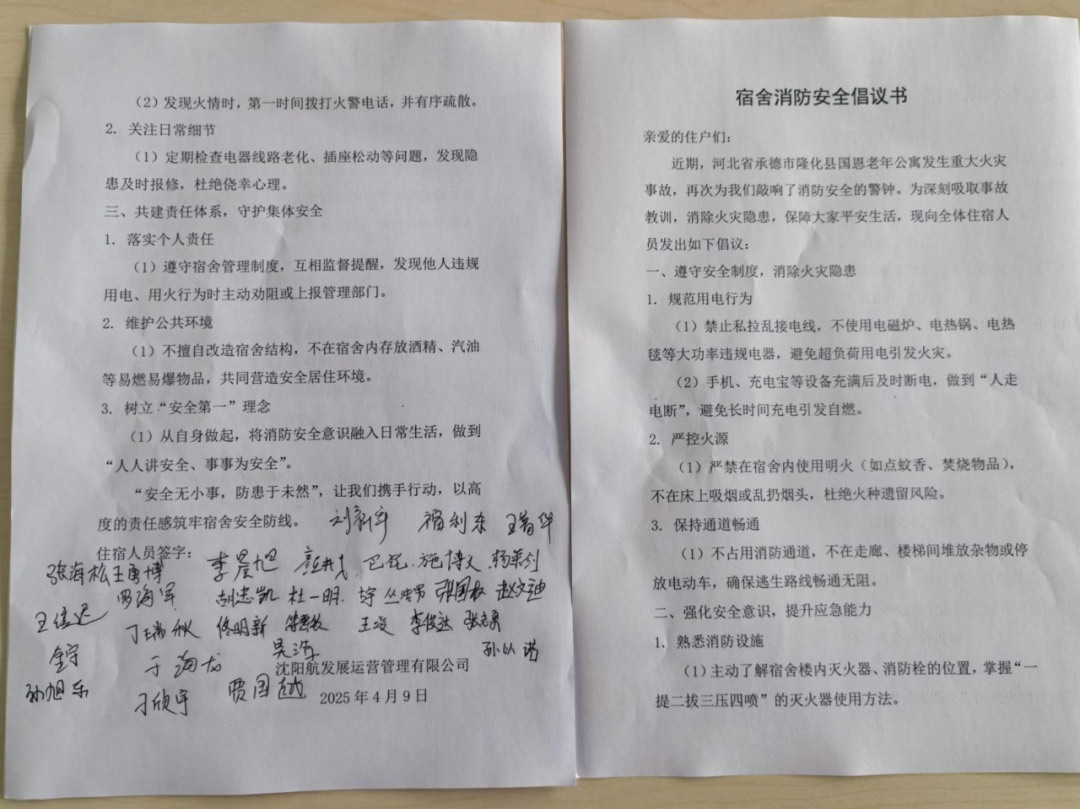 宿舍消防安全倡议书
亲爱的住户们：
近期，河北省承德市隆化县国恩老年公寓发生重大火灾
事故，再次为我们敲响了消防安全的警钟。为深刻吸取事故
教训，消除火灾隐患，保障大家平安生活，现向全体住宿人
员发出如下倡议：
一、遵守安全制度，消除火灾隐患
1. 规范用电行为
（1）禁止私拉乱接电线，不使用电磁炉、电热锅、电热
毯等大功率违规电器，避免超负荷用电引发火灾。
（2）手机、充电宝等设备充满后及时断电，做到“人走
电断”，避免长时间充电引发自燃。
2. 严控火源
（1）严禁在宿舍内使用明火（如点蚊香、焚烧物品），
不在床上吸烟或乱扔烟头，杜绝火种遗留风险。
3. 保持通道畅通
（1）不占用消防通道，不在走廊、楼梯间堆放杂物或停
放电动车，确保逃生路线畅通无阻。
二、强化安全意识，提升应急能力
1. 熟悉消防设施
（1）主动了解宿舍楼内灭火器、消防栓的位置，掌握“一
提二拔三压四喷”的灭火器使用方法。
（2）发现火情时，第一时间拨打火警电话，并有序疏散。
2. 关注日常细节
（1）定期检查电器线路老化、插座松动等问题，发现隐
患及时报修，杜绝侥幸心理。
三、共建责任体系，守护集体安全
1. 落实个人责任
（1）遵守宿舍管理制度，互相监督提醒，发现他人违规
用电、用火行为时主动劝阻或上报管理部门。
2. 维护公共环境
（1）不擅自改造宿舍结构，不在宿舍内存放酒精、汽油
等易燃易爆物品，共同营造安全居住环境。
3. 树立“安全第一”理念
（1）从自身做起，将消防安全意识融入日常生活，做到
“人人讲安全、事事为安全”。
“安全无小事，防患于未然”，让我们携手行动，以高
度的责任感筑牢宿舍安全防线。
住宿人员签字：
张海松 王勇博 李晨旭 施博文
罗海军 胡志凯 杜一明 张国权 赵文迪
丁瑞秋 佟明新 王凌 李俊达
于海龙 吴浩 孙以诺
孙旭东 刁欣宇 贾国越
沈阳航发展运营管理有限公司
2025 年 4 月 9 日